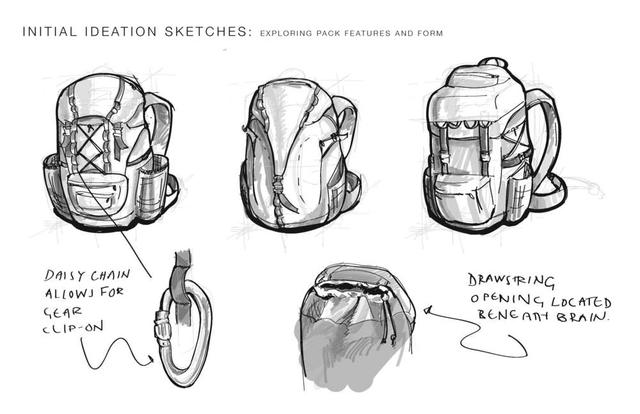 INITIAL IDEATION SKETCHES: EXPLORING PACK FEATURES AND FORM
DAISY CHAIN
ALLOWS FOR
GEAR
CLIP-ON
DRAWSTRING
OPENING LOCATED
BENEATH BRAIN.